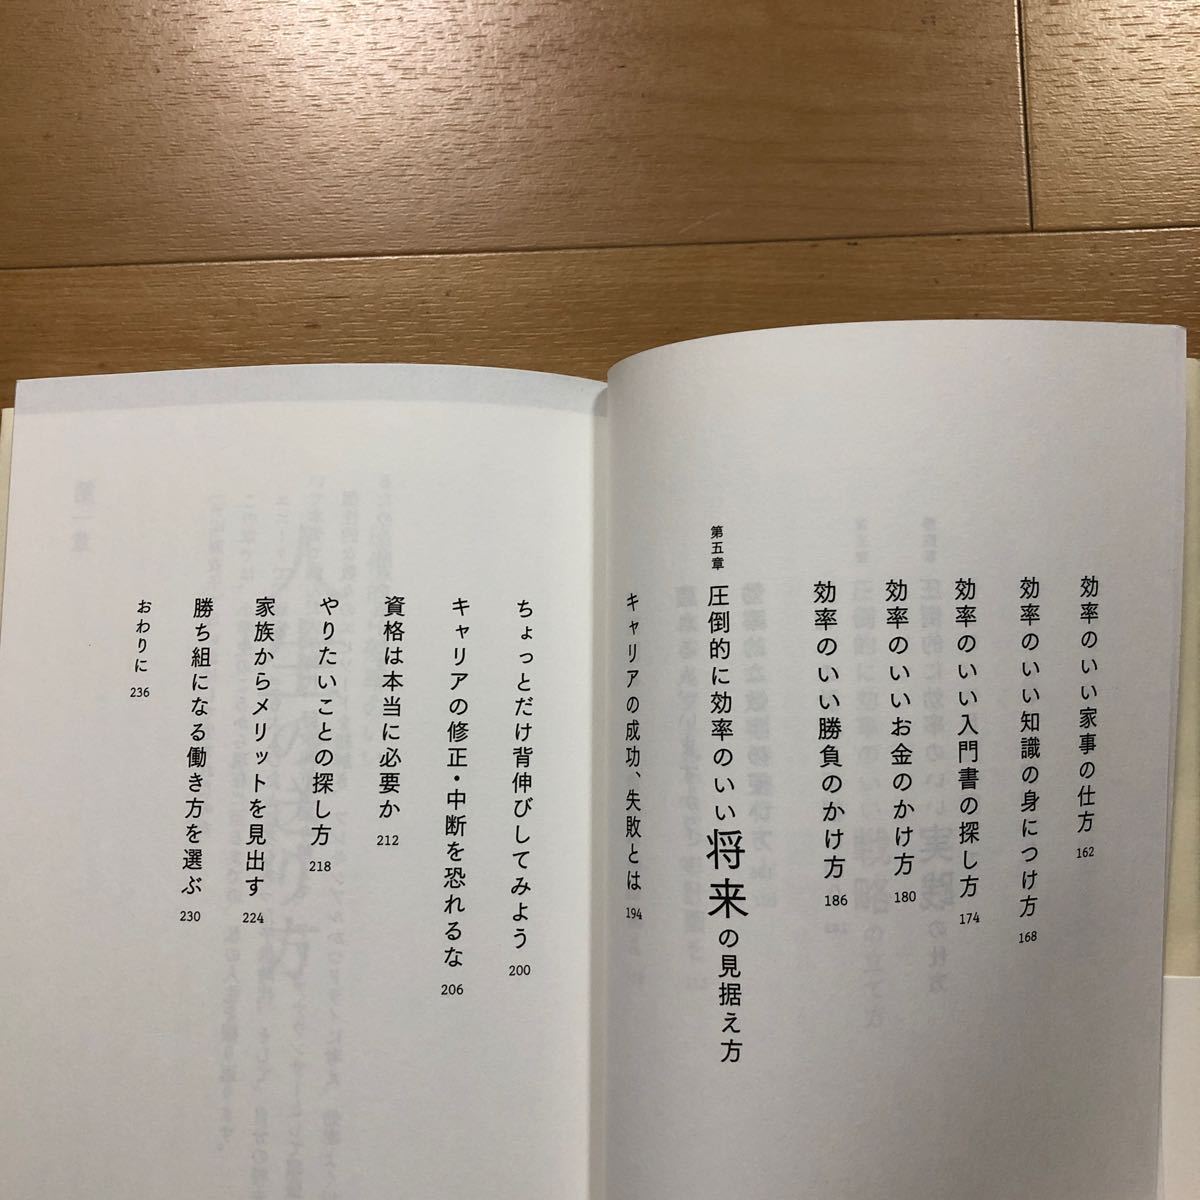 効率のいい家事の仕方 162
効率のいい知識の身につけ方 168
効率のいい入門書の探し方 174
効率のいいお金のかけ方 180
効率のいい勝負のかけ方 186
第五章 圧倒的に効率のいい将来の見据え方
キャリアの成功、失敗とは 194
ちょっとだけ背伸びしてみよう 200
キャリアの修正・中断を恐れるな 206
資格は本当に必要か 212
やりたいことの探し方 218
家族からメリットを見出す 224
勝ち組になる働き方を選ぶ 230
おわりに 236